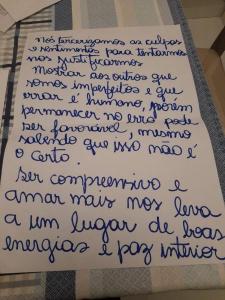 Nós terceirizamos as culpas
e sentimentos para tentarmos
nos justificarmos
Mostrar aos outros que
somos imperfeitos e que
errar é humano, porém
permanecer no erro pode
ser favorável, mesmo
sabendo que isso não é
o certo.
Ser compreensivo e
amar mais nos leva
a um lugar de boas
energias e paz interior